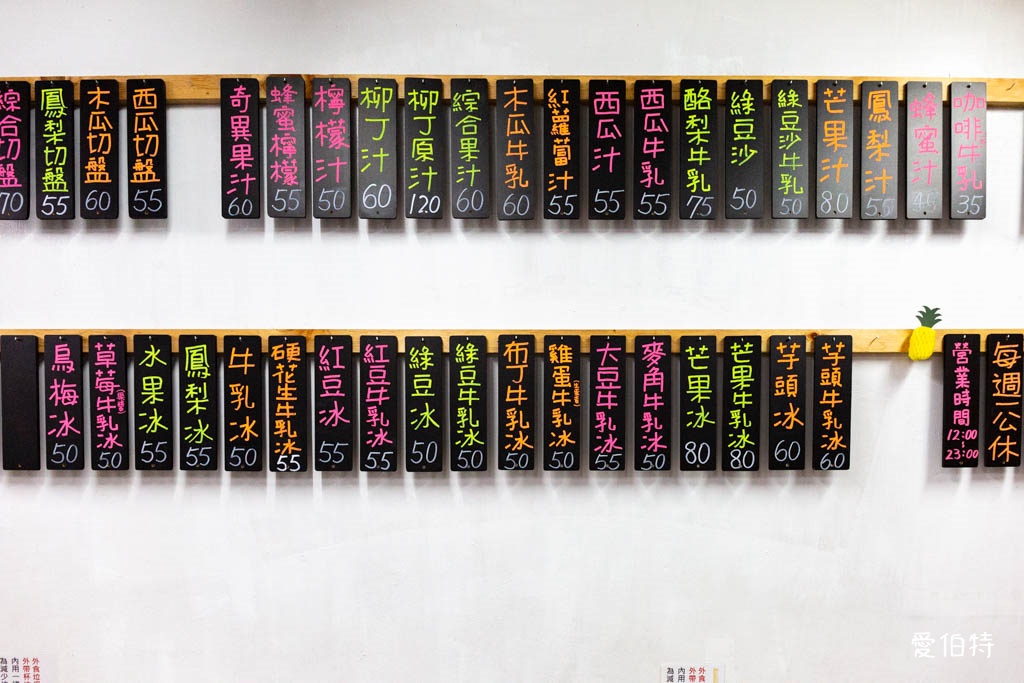 綜合切盤 70
鳳梨切盤 55
木瓜切盤 60
西瓜切盤 55
奇異果汁 60
蜂蜜檸檬 55
檸檬汁 50
柳丁汁 60
柳丁原汁 120
綜合果汁 60
木瓜牛乳 60
紅蘿蔔汁 55
西瓜汁 55
西瓜牛乳 55
酪梨牛乳 75
綠豆沙 50
綠豆沙牛乳 50
芒果汁 80
鳳梨汁 55
蜂蜜汁 45
咖啡牛乳 35
烏梅冰 50
草莓牛乳冰 50
水果冰 55
鳳梨冰 55
牛乳冰 50
硬花生牛乳冰 55
紅豆冰 55
紅豆牛乳冰 55
綠豆冰 50
綠豆牛乳冰 50
布丁牛乳冰 50
雞蛋牛乳冰 50
大豆牛乳冰 55
麥角牛乳冰 50
芒果冰 80
芒果牛乳冰 80
芋頭冰 60
芋頭牛乳冰 60
營業時間
12:00
~
23:00
每週一公休
外食垃
外帶杯
內用一
為減少
外帶
內用
為減
愛伯特